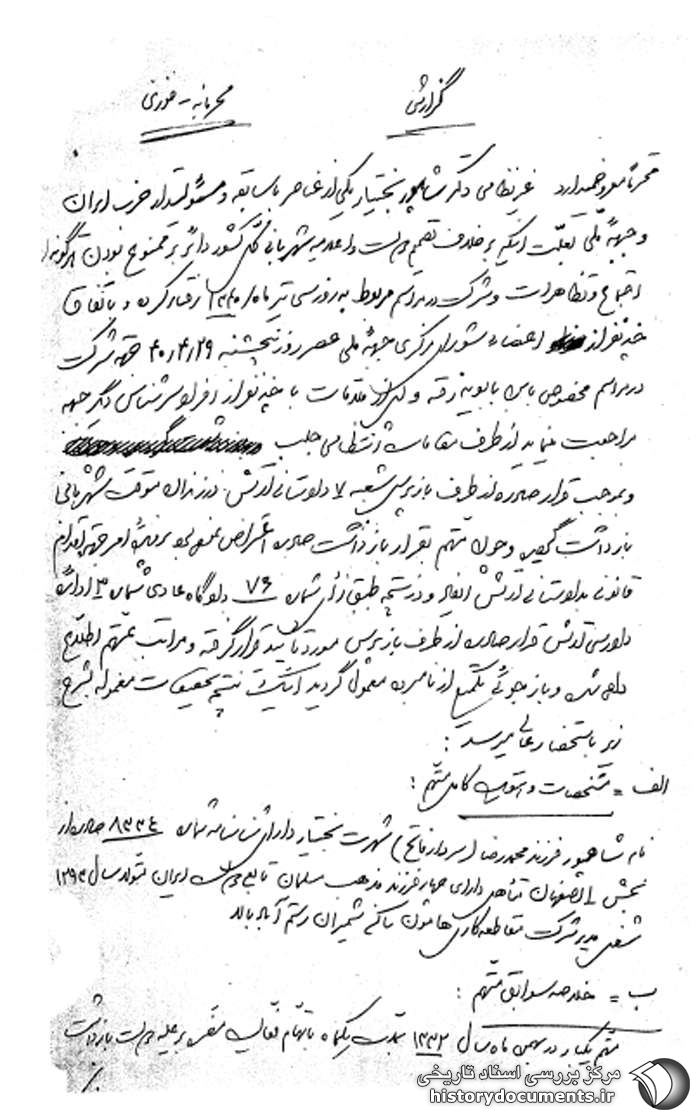 گزارش
محرمانه - فوری
محترماً معروض میدارد غیرنظامی دکتر شاپور بختیار یکی از عناصر باسابقه و مسئولیتدار حزب ایران
و جبهه ملی بعلت اینکه برخلاف تصمیم دولت و اعلامیه شهربانی کل کشور دائر بر ممنوع بودن هرگونه
اجتماع و تظاهرات و شرکت در مراسم مربوط به روز سی تیر ماه ۱۳۴۰ رفتار کرده و باتفاق
چند نفر از اعضاء شورای مرکزی جبهه ملی عصر روز پنجشنبه ۴۰/۴/۲۹ جهت شرکت
در مراسم مخصوص بابن بابویه رفته و مقامات با چند نفر از افراد سرشناس دیگر جبهه
مراجعت مینماید از طرف مقامات انتظامی جلب
و بموجب قرار صادره از طرف بازپرس شعبه ۷ دادستانی ارتش در زندان موقت شهربانی
بازداشت گردید و چون متهم بقرار بازداشت صادره اعتراض نموده بود پرونده امر جهت اقدام
قانونی بدادستانی ارتش ارسال و در نتیجه طبق رأی شماره ۷۶ دادگاه عادی شماره ۳ اداره
دادرسی ارتش قرار صادره از طرف بازپرس مورد تأیید قرار گرفته و مراتب بمتهم اطلاع
داده شد و بازجوئی تکمیلی از نامبرده معمول گردید اینک نتیجه تحقیقات معموله بشرح
زیر باستحضار عالی میرسد :
الف = مشخصات و هویت کامل متهم :
نام شاهپور فرزند محمدرضا (سردار فاتح) شهرت بختیار دارای شناسنامه شماره ۸۳۳۴ صادره از
بخش ۱ اصفهان متأهل دارای چهار فرزند مذهب مسلمان تابع دولت ایران متولد سال ۱۲۹۳
شغل مدیر شرکت مقاطعه‌کاری هامون ساکن شمیران رستم آباد بالا
ب = خلاصه سوابق متهم :
متهم یکبار در بهمن ماه سال ۱۳۳۲ بمدت یکماه باتهام فعالیت مضره بر علیه دولت بازداشت
مرکز بررسی اسناد تاریخی
historydocuments.ir